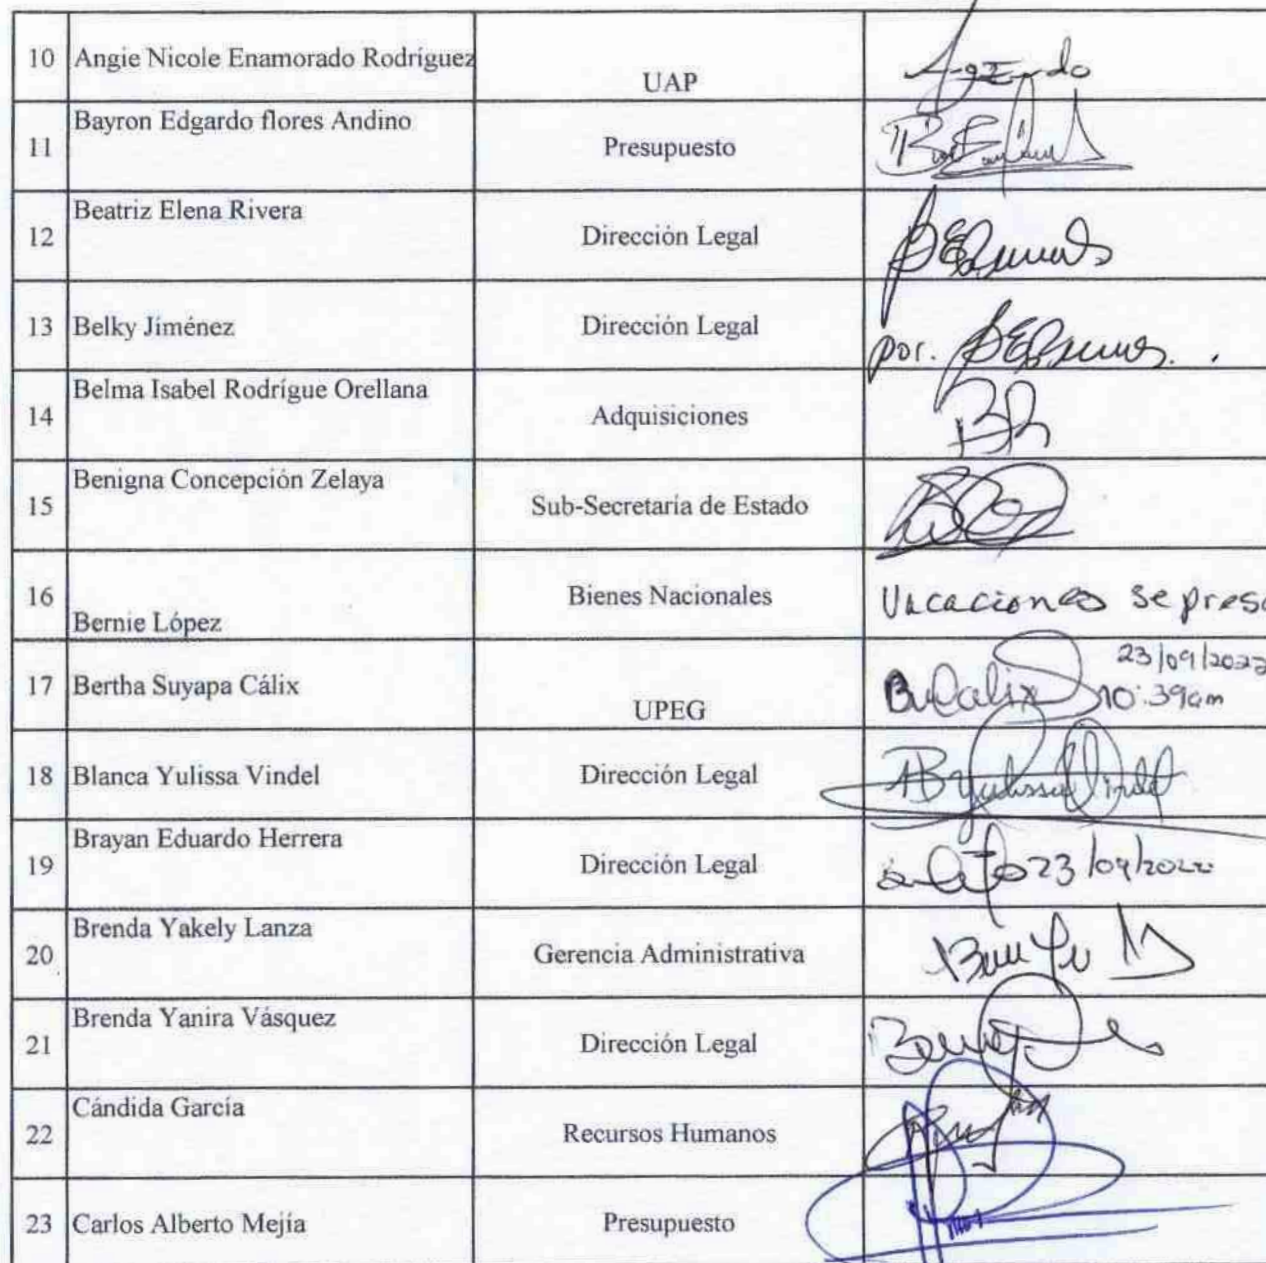 10 Angie Nicole Enamorado Rodríguez UAP
11 Bayron Edgardo flores Andino Presupuesto
12 Beatriz Elena Rivera Dirección Legal
13 Belky Jiménez Dirección Legal por.
14 Belma Isabel Rodrígue Orellana Adquisiciones
15 Benigna Concepción Zelaya Sub-Secretaría de Estado
16 Bernie López Bienes Nacionales Vacaciones se pres
17 Bertha Suyapa Cálix UPEG 23/09/2022
10:39am
18 Blanca Yulissa Vindel Dirección Legal
19 Brayan Eduardo Herrera Dirección Legal 23/09/2022
20 Brenda Yakely Lanza Gerencia Administrativa
21 Brenda Yanira Vásquez Dirección Legal
22 Cándida García Recursos Humanos
23 Carlos Alberto Mejía Presupuesto